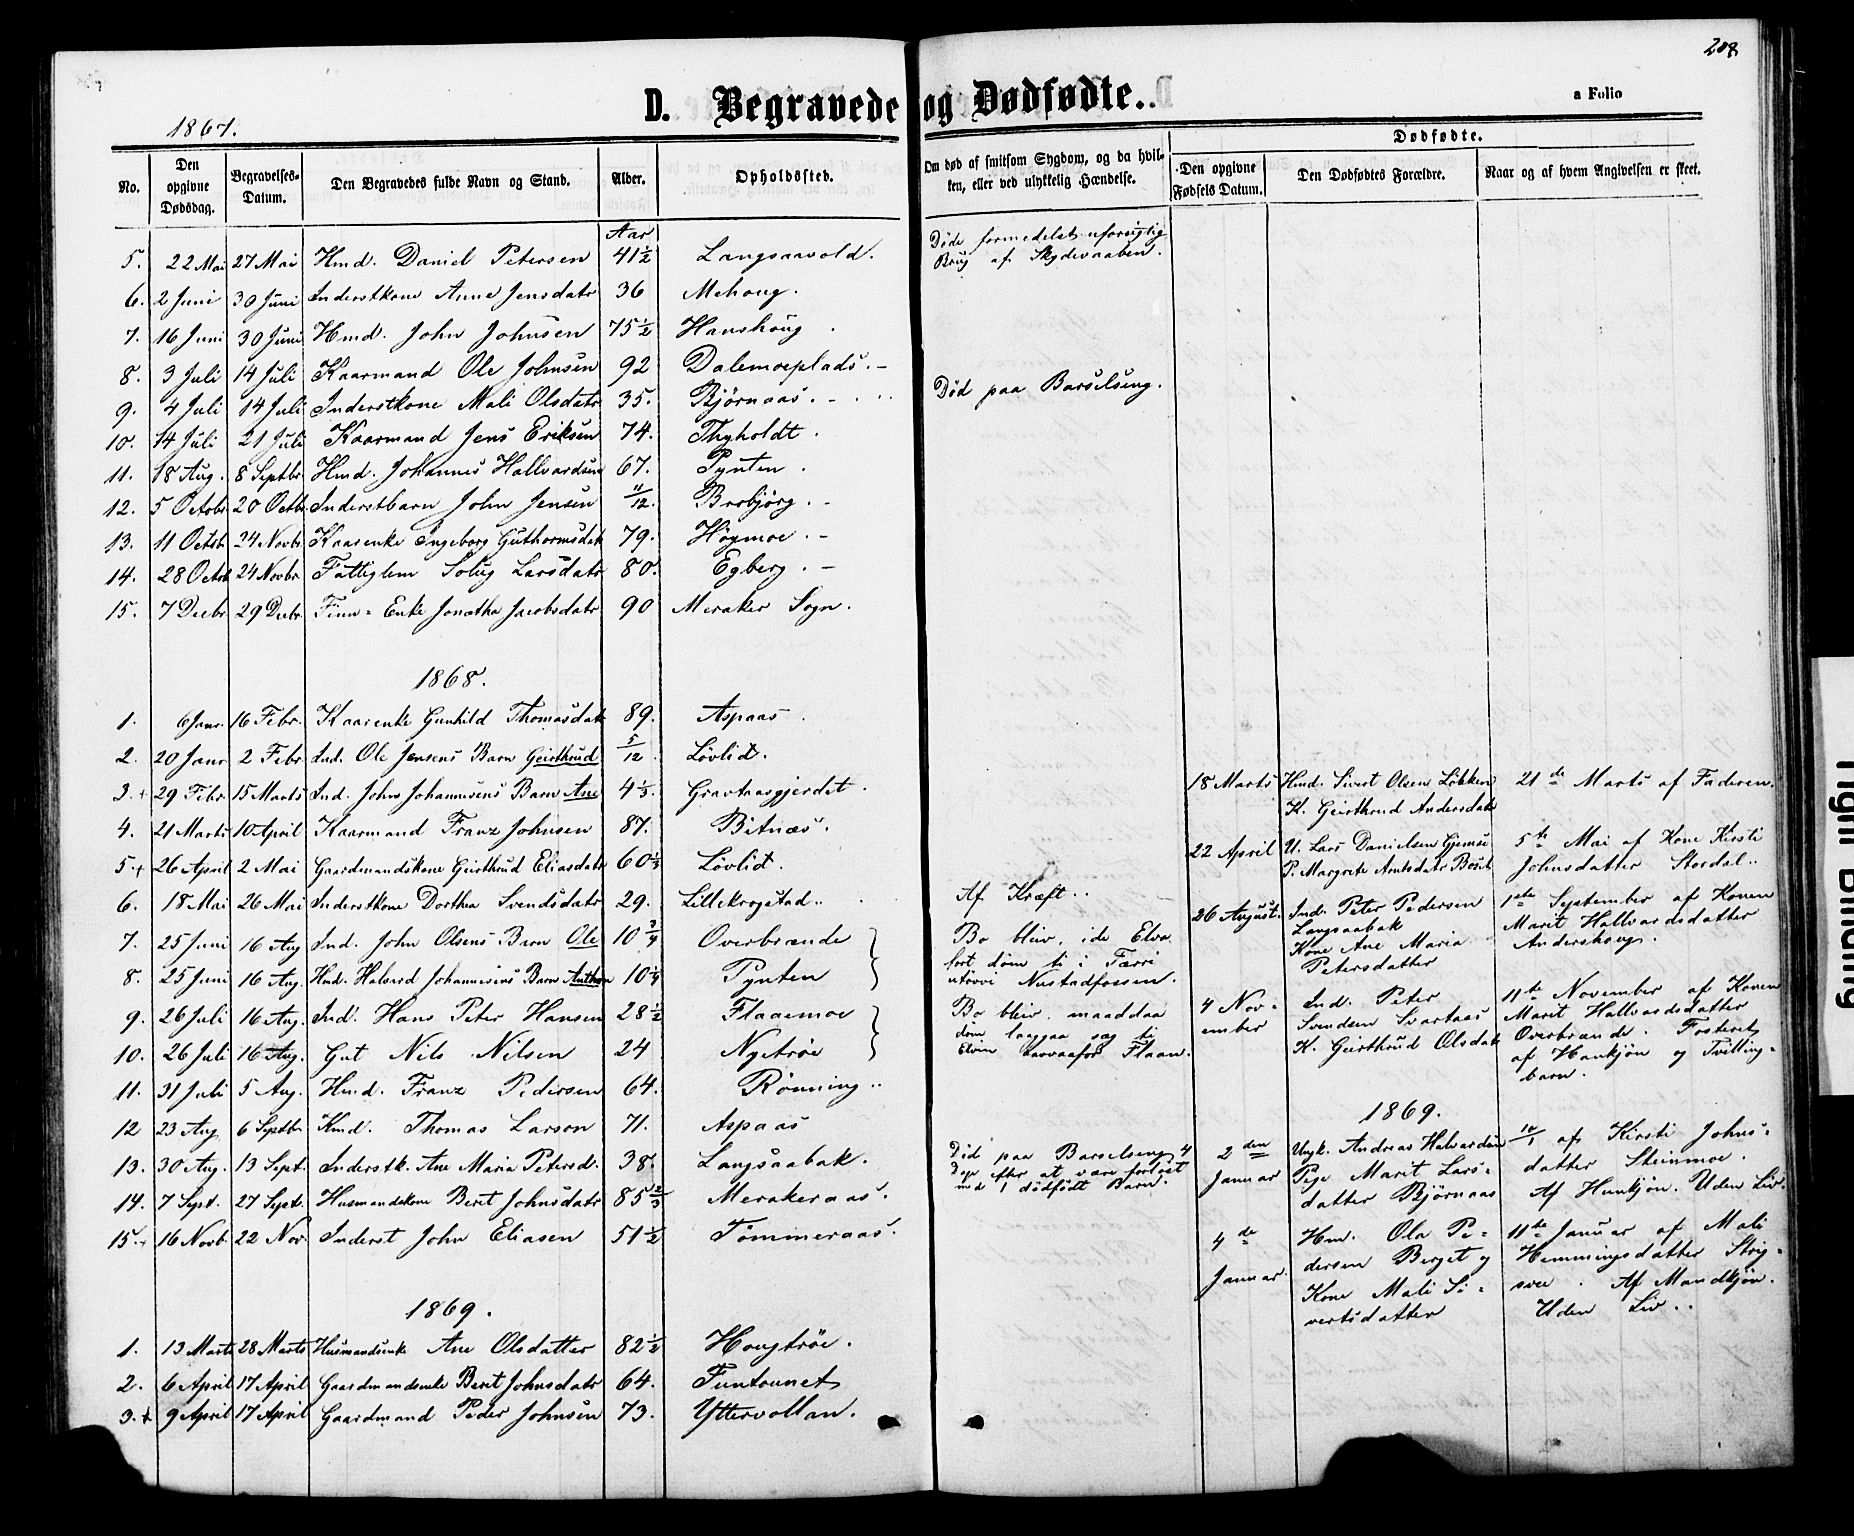 208
D. Begravede og Dødfødte.
a Folio
1867.
No.
Den opgivne Dødsdag.
Begravelses-Datum.
Den Begravedes fulde Navn og Stand.
Alder.
Opholdssted.
Om død af smitsom Sygdom, og da hvil-
ken, eller ved ulykkelig Hændelse.
Dødfødte.
Den opgivne Fødsels Datum.
Den Dødfødtes Forældre.
Naar og af hvem Angivelsen er skeet.
Aar
5. 22 Mai 27 Mai Hmd. Daniel Petersen 41 1/2 Langsaavold. Døde formedelst uforsigtig
Brug af Skydevaaben.
6. 2 Juni 30 Juni Inderstkone Anne Jensdatr 36 Mehoug.
7. 16 Juni 30 Juni Hmd. John Johnsen 75 1/2 Hanshoug.
8. 3 Juli 14 Juli Kaarmand Ole Johnsen 92 Dalemoeplads. -
9. 4 Juli 14 Juli Inderstkone Mali Olsdatr 35. Bjørnaas. - Død paa Barselseng.
10. 14 Juli 21 Juli Kaarmand Jens Eriksen 74. Thyholdt.
11. 18 Aug. 8 Septbr Hmd. Johannes Hallvardsen 67. Pynten.
12. 5 Octobr 20 Octbr Inderstbarn John Jensen 11/12. Brobjørg. -
13. 11 Octob 24 Novbr Kaarenke Ingeborg Guthormsdatr 79. Høymoe. -
14. 28 Octob 24 Novbr Fattiglem Solvg Larsdatr 80. Egberg. -
15. 7 Decbr 29 Decbr Finn-Enke Jonatha Jacobsdatr 90 Meraker Sogn.
1868.
1. 6 Janr. 16 Febr. Kaarenke Gunhild Thomasdatr 89. Aspaas.
2. 20 Janr 2 Febr Ind. Ole Jensens Barn Geirthrud 5/12 Løvlid.
3.+ 29 Febr 15 Marts Ind. John Johannesens Barn Ane 4 1/3. Gravtaasgjerdet.
4. 21 Marts 10 April Kaarmand Franz Johnsen 87. Bitnæs.
5+ 26 April 2 Mai Gaardmandskone Geirthrud Eliasdatr 60 1/3 Løvlid.
6. 18 Mai 26 Mai Inderstkone Dorthea Svendsdatr 29. Lillekrogstad.. Af Kræft..
7. 25 Juni 16 Aug Ind. John Olsens Barn Ole 10 3/4 Overbrænde
8. 25 Juni 16 Aug. Hmd. Halvard Johannesens Barn Anthon 10 1/4 Pynten
Bo bleiv. ide Elva
fort døm ti i Færri
utovi Nustadfossen.
9. 26 Juli 16 Aug. Ind. Hans Peter Hansen 28 1/2 Flaamoe
10. 26 Juli 16 Aug. Gut Nils Nilsen 24 Nytrøe
Bo bleiv. maaddaa
døm laggaa sag ti
Elvin aavaafor Flaan.
11. 31 Juli 5 Aug. Hmd. Franz Pedersen 64. Rønning..
12 23 Aug 6 Septbr. Kmd. Thomas Larson 71. Aspaas
13. 30 Aug. 13 Sept. Inderstk. Ane Maria Petersd. 38. Langsaabak. Død paa Barselseng 4
Dage efter at være forløst
med 1 dødfødt Barn.
14. 7 Sept. 27 Sept. Husmandskone Berit Johnsdatr 85 2/3 Merakeraas.
15.+ 16 Novb. 22 Nov Inderst John Eliasen 51 1/2 Tømmeraas.
1869.
1. 13 Marts 28 Marts Husmandsenke Ane Olsdatter 82 1/2 Hougtrøe.
2. 6 April 17 April Gaardmandsenke Berit Johnsdatr 64. Funtaunet
3.+ 9 April 17 April Gaardmand Peder Johnsen 73. Yttervollan.
18 Marts Hmd. Sivert Olsen Løkken
K. Geirthrud Andersdatr
21de Marts af Faderen.
22 April U. Lars Danielsen Gjemse
P. Margrete Arntsdatr
5te Mai af Kone Kirsti
Johnsdatter Stordal..
26 August. Ind. Peter Pedersen
Langsaabak
Kone Ane Maria
Petersdatter
1ste September af Konen
Marit Hallvardsdatter
Andershoug.
4 Nov-
ember
Ind. Peter
Svendsen Svartaas
K. Geirthrud Olsdatr
11te November af Konen
Marit Hallvardsdatter
Overbrænde. Fosteret
af Hankjøn og Tvilling-
barn.
1869.
2den
Januar
Ungk. Andreas Halvardsen
Pige Marit Lars-
datter Bjørnaas
10/1 af Kirsti Johns-
datter Steinmoe.
Af Hunkjøn. Uden Liv.
4de
Januar.
Hm. Ola Pe-
dersen Berget og
Kone Mali Si-
vertsdatter
11te Januar af Mali
Hemmingsdatter Strig-
svee. Af Mandkjøn.
Uden Liv..